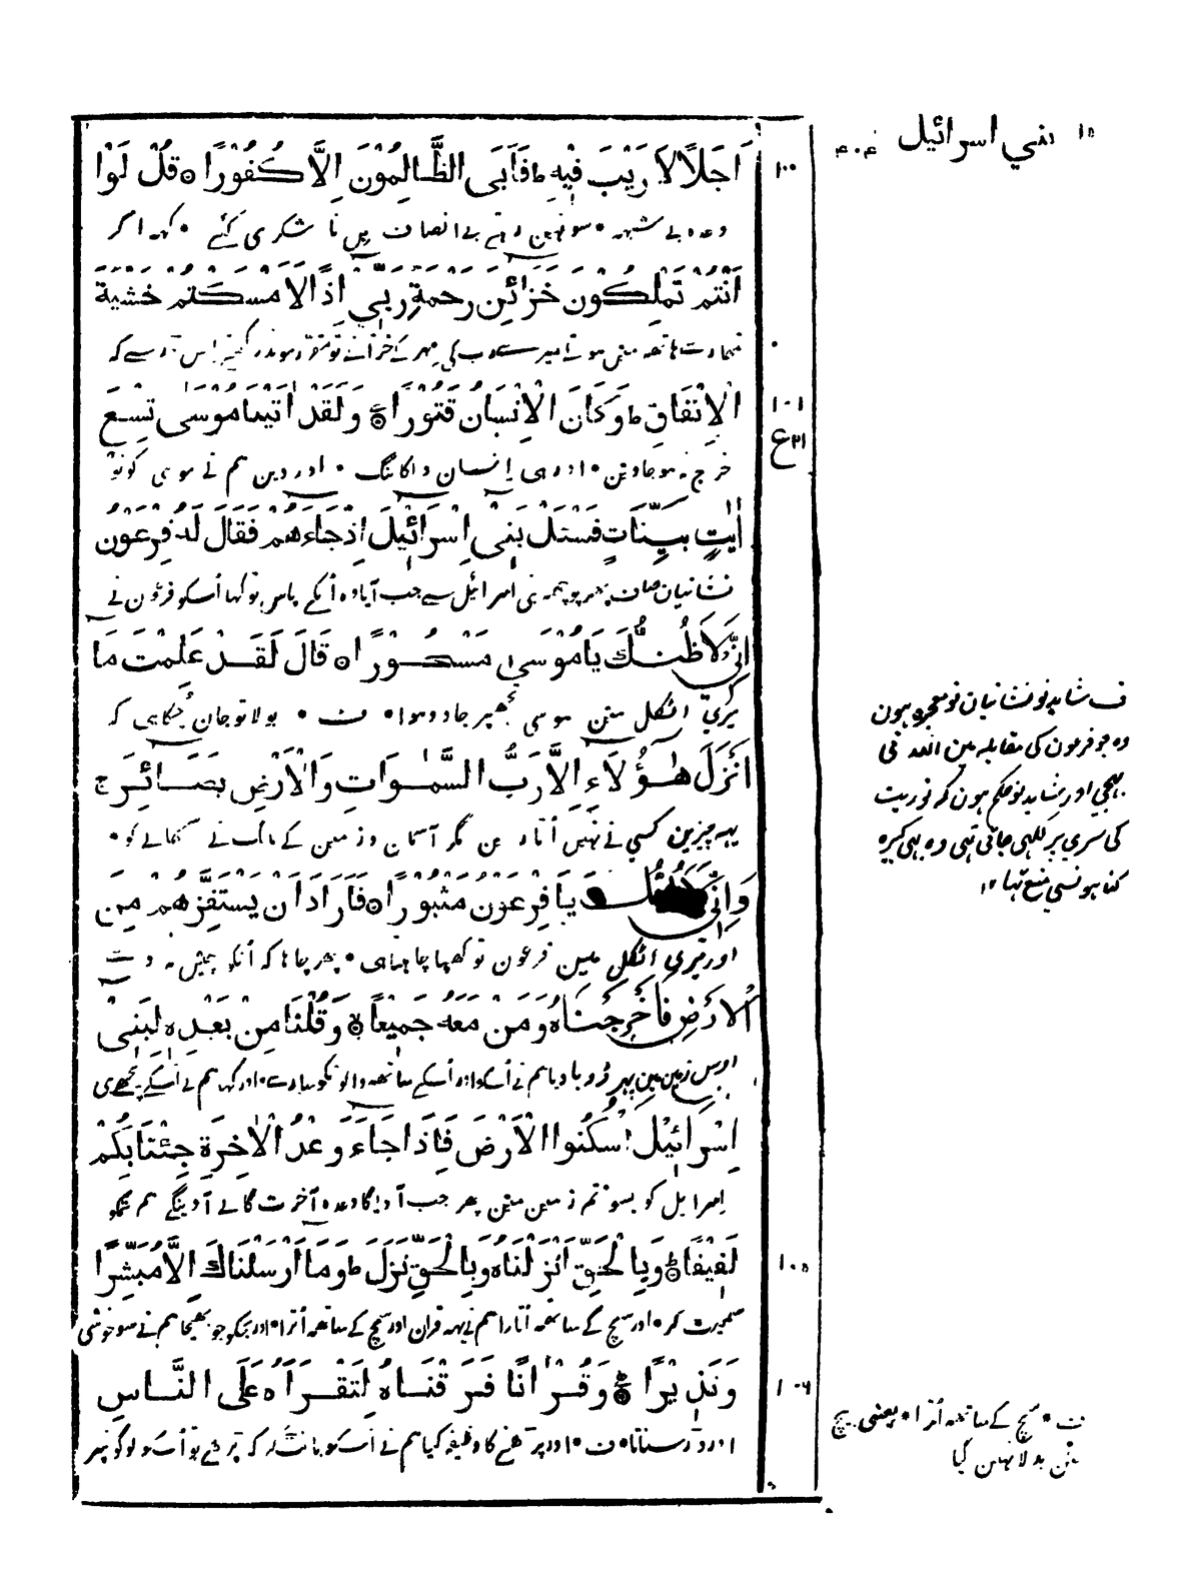 ١٥ بني اسرائيل ٤٠٤
١٠٠
اَجَلًا لَا رَيْبَ فِيْهِ ط فَاَبَى الظَّالِمُوْنَ اِلَّا كُفُوْرًا ۝ قُلْ لَوْا
وعدہ بے شبہہ • سو نہین رہتے بے انصاف بِن نا شکری کئے • کہہ اگر
اَنْتُمْ تَمْلِكُوْنَ خَزَائِنَ رَحْمَةِ رَبِّيْ اِذًا لَاَمْسَكْتُمْ خَشْيَةَ
تمہارے ہاتھہ مین ہوتے میرے رب کی مہر کے خزانے تو مقرر موند رکھتے اس ڈر سے کہ
١٠١
الْاِنْفَاقِ ط وَكَانَ الْاِنْسَانُ قَتُوْرًا ۝ وَلَقَدْ اٰتَيْنَا مُوْسٰى تِسْعَ
ع
خرچ نہ ہو جاوین • اور ہی اِنسان دل کا تنگ • اور دین ہم نے موسی کو نو
اٰيٰتٍ بَيِّنَاتٍ فَسْئَلْ بَنِيْ اِسْرَائِيْلَ اِذْ جَاءَهُمْ فَقَالَ لَهُ فِرْعَوْنُ
نشانیان صاف پھر پوچھہ بنی اسرائیل سے جب آیا وہ اُنکے پاس تو کہا اُسکو فرعون نے
اِنِّيْ لَاَظُنُّكَ يَا مُوْسٰى مَسْحُوْرًا ۝ قَالَ لَقَدْ عَلِمْتَ مَا
میری اٹکل مین موسی تجھپر جادو ہوا • ف • بولا تو جان چکا ہی کہ
اَنْزَلَ هٰؤُلَاءِ اِلَّا رَبُّ السَّمٰوَاتِ وَالْاَرْضِ بَصَائِرَ ج
یہہ چیزین کسی نے نہین اُتارین مگر آسمان و زمین کے مالک نے سمجھانے کو •
وَاِنِّيْ يَا فِرْعَوْنُ مَثْبُوْرًا ۝ فَاَرَادَ اَنْ يَسْتَفِزَّهُمْ مِنَ
اور تیری اٹکل مین فرعون تو کھپا چاہتا ہی • پھر چاہا کہ اُنکو چین نہ دے
الْاَرْضِ فَاَخْرَجْنَاهُ وَمَنْ مَعَهُ جَمِيْعًا ۝ وَقُلْنَا مِنْ بَعْدِهٖ لِبَنِيْ
اوس زمین مین پھر ڈوبا دیا ہم نے اُسکو اور اُسکے ساتھہ والونکو سارے • اور کہا ہم نے اُسکے پیچھے بنی
اِسْرَائِيْلَ اسْكُنُوا الْاَرْضَ فَاِذَا جَاءَ وَعْدُ الْاٰخِرَةِ جِئْنَا بِكُمْ
اِسرائیل کو بسو تم زمین مین پھر جب آویگا وعدہ آخرت کا لے آوینگے ہم تمکو
١٠٥
لَفِيْفًا ۝ وَبِالْحَقِّ اَنْزَلْنَاهُ وَبِالْحَقِّ نَزَلَ ط وَمَا اَرْسَلْنَاكَ اِلَّا مُبَشِّرًا
سمیٹ کر • اور سچ کے ساتھہ اُتارا ہم نے یہہ قران اور سچ کے ساتھہ اُترا • اور تجکو جو بھیجا ہم نے سو خوشی
١٠٦
وَنَذِيْرًا ۝ وَقُرْاٰنًا فَرَقْنَاهُ لِتَقْرَاَهُ عَلَى النَّاسِ
اور ڈر سناتا • ف • اور پڑھنے کا وظیفہ کیا ہم نے اُسکو بانٹ کر کہ پڑھے تو اُسکو لوگونپر
ف شاید نو نشانیان نو معجزہ ہون
وہ جو فرعون کی مقابلہ مین اللہ نی
بھیجی اور شاید نو حکم ہون کہ توریت
کی سری پر لکھی جاتی تہی وہ یہی کبیرہ
گناہونسی منع تہا ١٢
ف • سچ کے ساتھہ اُترا • یعنی بیچ
مین بدلا نہین گیا